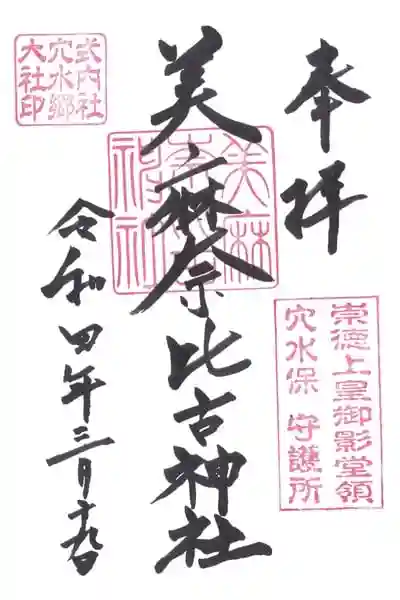 奉拝
崇徳上皇御影堂領
穴水保 守護所
美麻奈比古神社
式内社
穴水郷
大社印
令和四年三月十九日